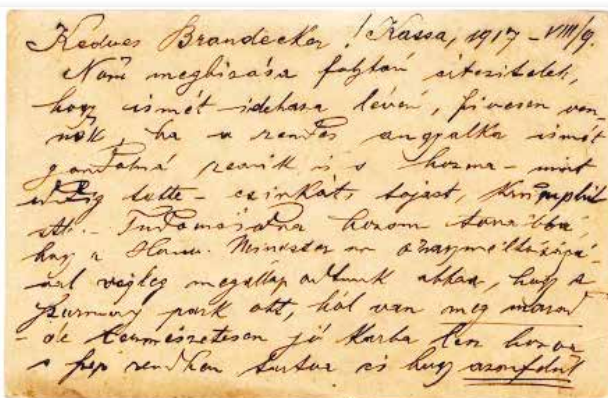 Kedves Brandecker! Kassa, 1917 - VIII/9.
Nőm megbizása folytán értesitelek,
hogy ismét idehaza lévén, szivesen ven-
nők, ha a rendes angyalka ismét
gondolna reánk is s hozna - mint
eddig tette - csirkét, tojást, krumplit
stb. - Tudomásodra hozom továbbá,
hogy a Honv. Miniszter ur őnagyméltóságá-
val végleg megállapodtunk abban, hogy a
park ott, hol van meg marad
- de természetesen jó karba lesz hozva
s szép rendben tartva és hogy azonfelül